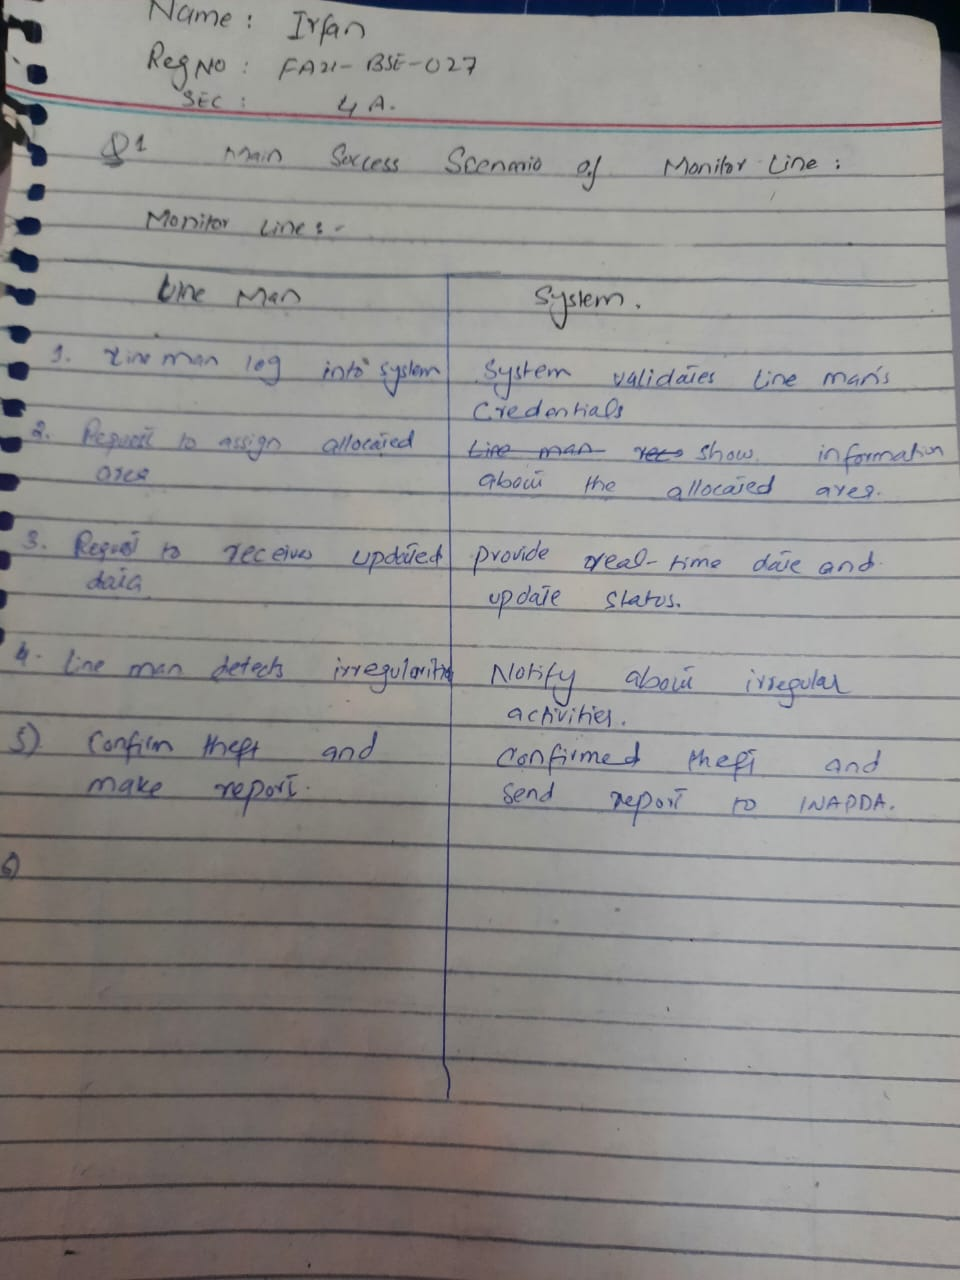 Name : Irfan
Reg No : FA21-BSE-027
SEC : 4 A.
Q1 Main Success Scenario of Monitor Line :
Monitor Line :-
Line Man System.
1. Line man log into system System validates line man's
Credentials
2. Request to assign allocated Line man show information
area about the allocated area.
3. Request to receives updated provide real-time date and
data update status.
4. Line man detects irregularities Notify about irregular
activities.
5) Confirm theft and Confirmed theft and
make report. Send report to WAPDA.
6)